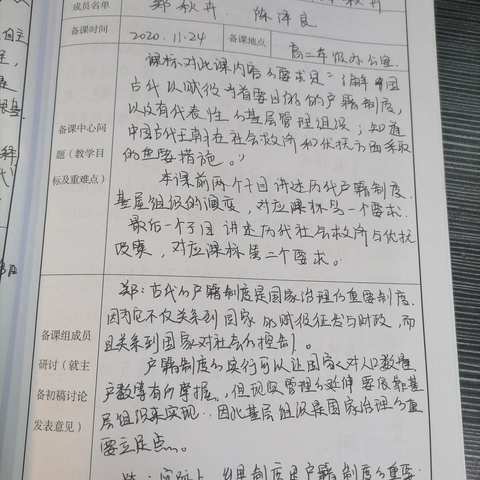 成员名单 郑秋丹 陈泽良
备课时间 2020.11.24 备课地点 高二年级办公室
课标对此课内容的要求是"了解中国
古代以赋役为首要目的的户籍制度,
以及有代表性的基层管理组织;知道
中国古代王朝在社会救济和优抚方面采取
的重要措施。"
备课中心问
题(教学目
标及重难点)
本课前两个子目讲述历代户籍制度、
基层组织的演变,对应课标第一个要求。
最后一个子目讲述历代社会救济与优抚
政策,对应课标第二个要求。
备课组成员
研讨(就主
备初稿讨论
发表意见)
郑:古代的户籍制度是国家治理的重要制度,
因为它不仅关系到国家的赋役征发与财政,而
且关系到国家对社会的控制。
户籍制度的实行可以让国家对人口数量
户数等有所掌握。但现实管理的延伸要依靠基
层组织来实现,因此基层组织是国家治理的重
要立足点。
实际上
制度是户籍制度的重要